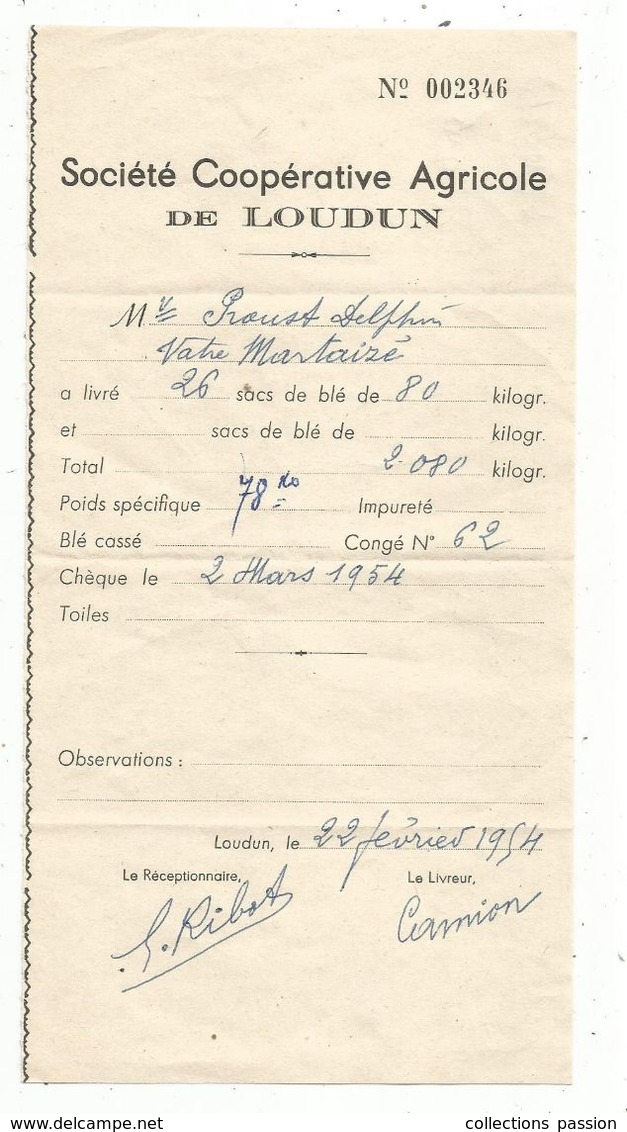 Nº 002346
Société Coopérative Agricole
DE LOUDUN
Mʳ Proust Delphin
Vatre Martaizé
a livré 26 sacs de blé de 80 kilogr.
et sacs de blé de kilogr.
Total 2.080 kilogr.
Poids spécifique 78 ko Impureté
Blé cassé Congé N° 62
Chèque le 2 Mars 1954
Toiles
Observations :
Loudun, le 22 février 1954
Le Réceptionnaire, Le Livreur,
G. Ribot Camion
www.delcampe.net collections passion